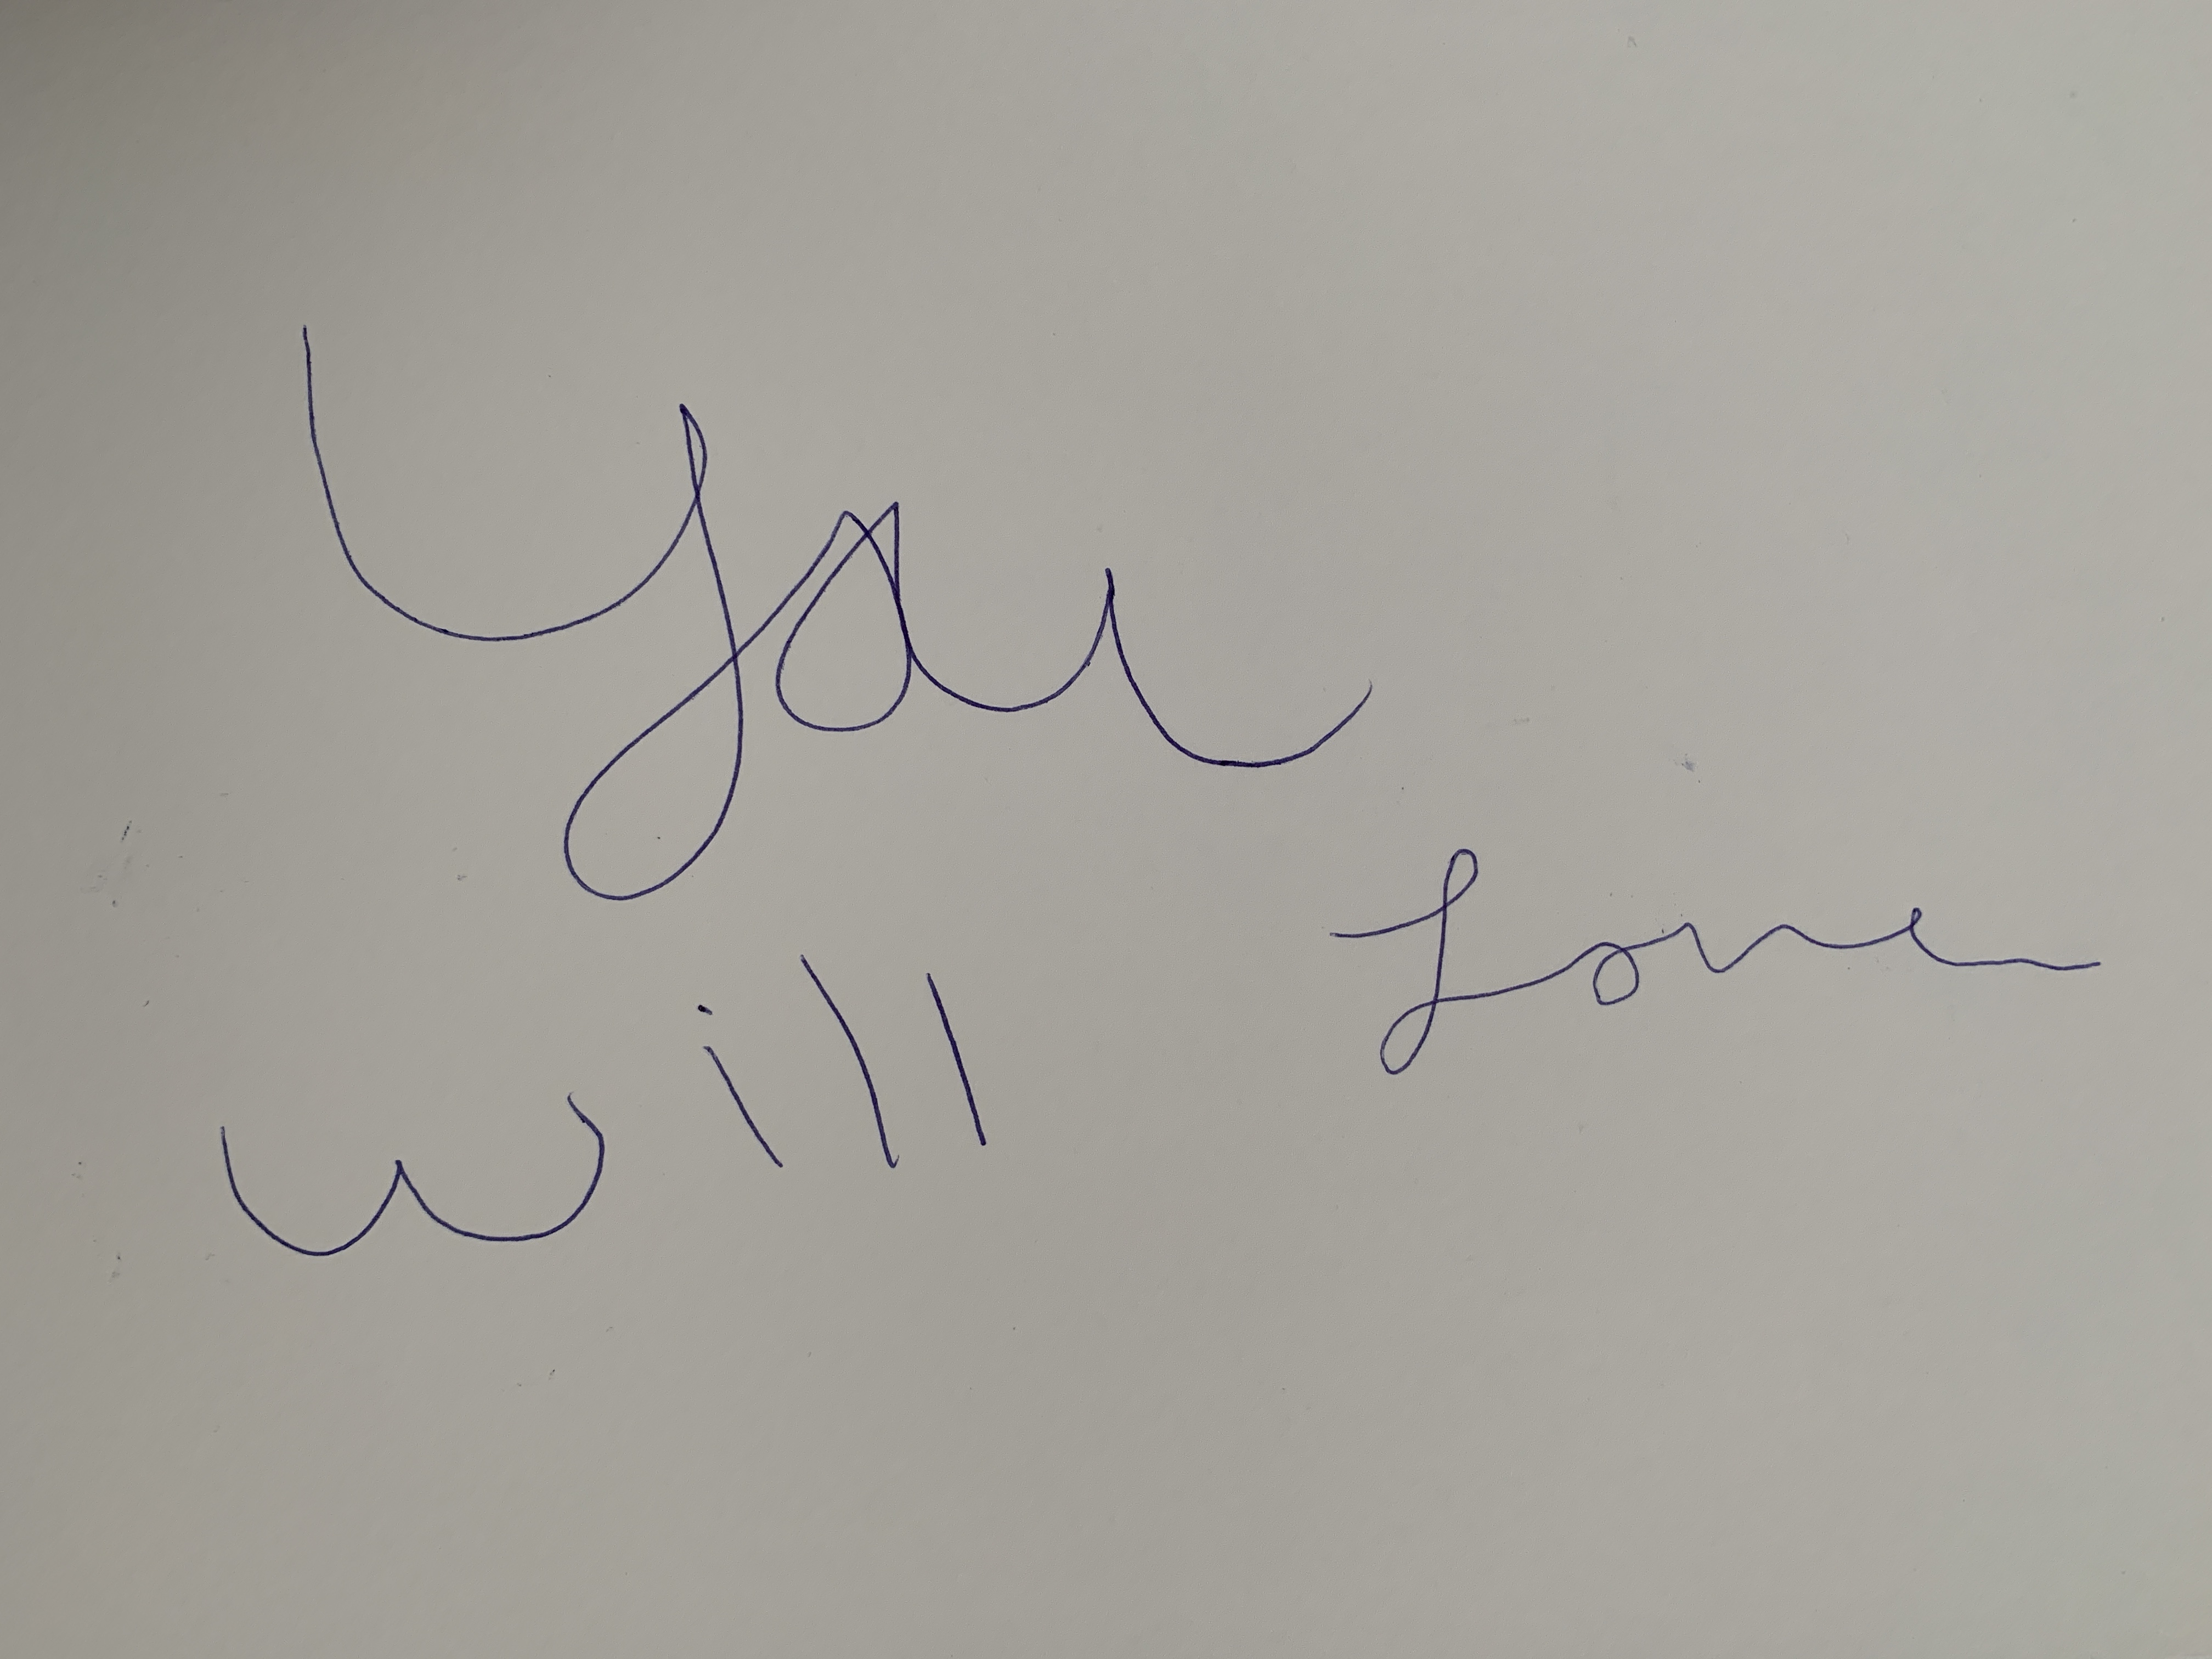 You
will Love